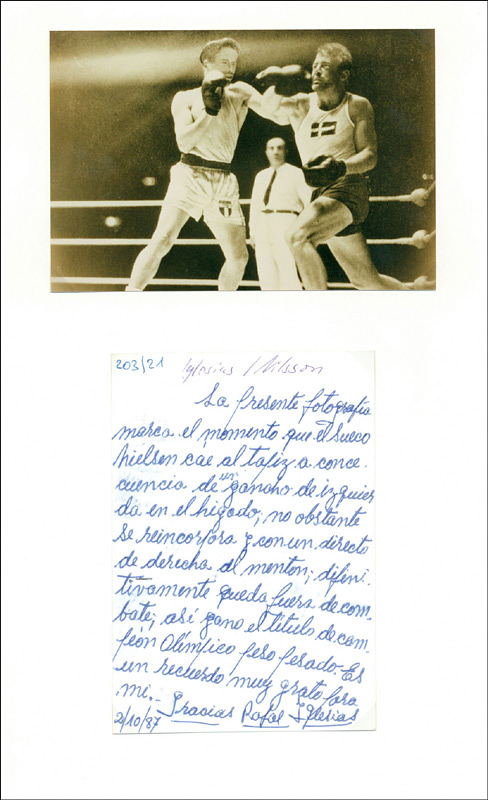 203/21 Iglesias / Nilsson
La presente fotografía
marca el momento que el sueco
Nielsen cae al tapiz a conce.
cuencia de un ganaho de izquier
da en el higado, no obstante
se reincorpora y con un directo
de derecha al menton; difini.
tivamente queda fuera de com-
bate, así gano el título de cam-
peón Olímpico peso pesado. Es
un recuerdo muy grato para
mi.-
2/10/87 Gracias Rafal Iglesias